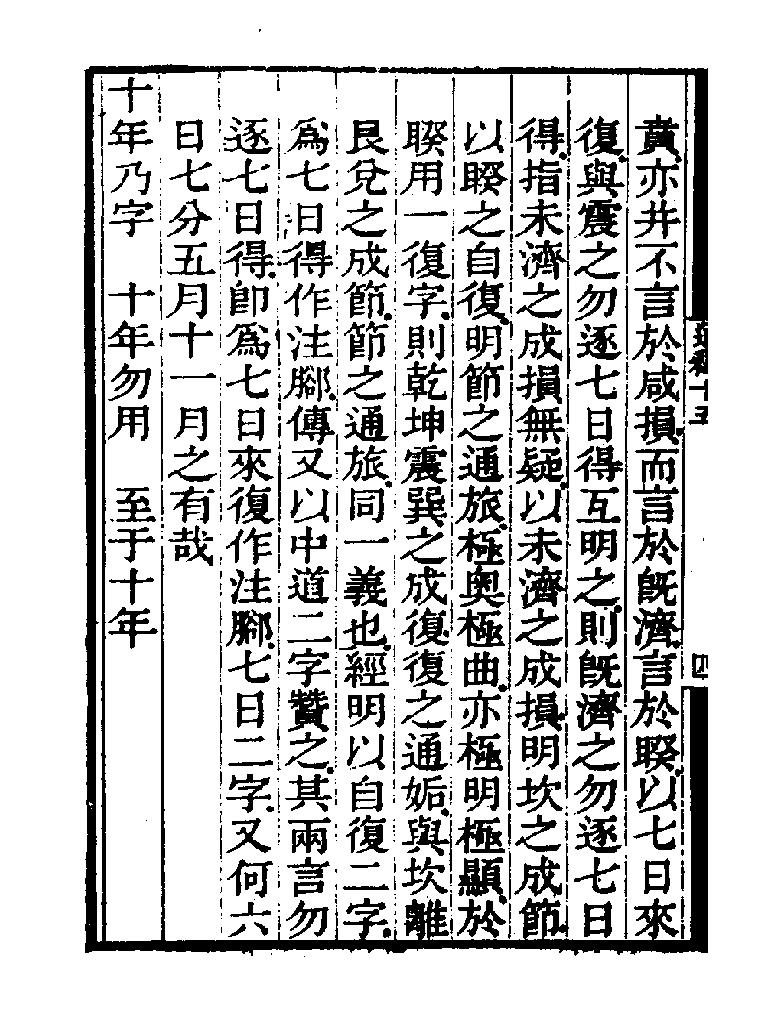 賁亦井不言於咸損而言於旣濟言於睽以七日來
復與震之勿逐七日得互明之則旣濟之勿逐七日
得指未濟之成損無疑以未濟之成損明坎之成節
以睽之自復明節之通旅極奧極曲亦極明極顯於
睽用一復字則乾坤震巽之成復復之通姤與坎離
艮兌之成節節之通旅同一義也經明以自復二字
爲七日得作注腳傳又以中道二字贊之其兩言勿
逐七日得卽爲七日來復作注腳七日二字又何六
日七分五月十一月之有哉
十年乃字　十年勿用　至于十年
十五
四